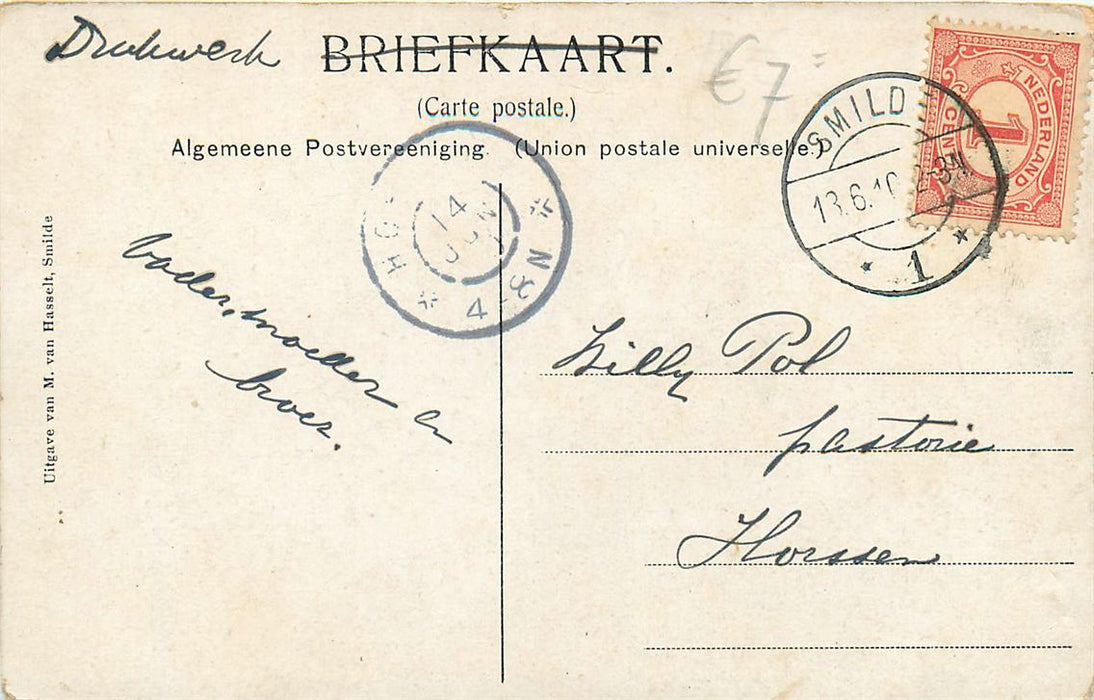 Drukwerk
BRIEFKAART.
(Carte postale.)
Algemeene Postvereeniging. (Union postale universelle.)
€ 7=
SMILDE
13.6.10 2-3N
1
NEDERLAND
1
CENT
HO
14 JUN
4-8 N
Uitgave van M. van Hasselt, Smilde
vader, moeder en
broer.
Willy Pol
pastorie
Horssen